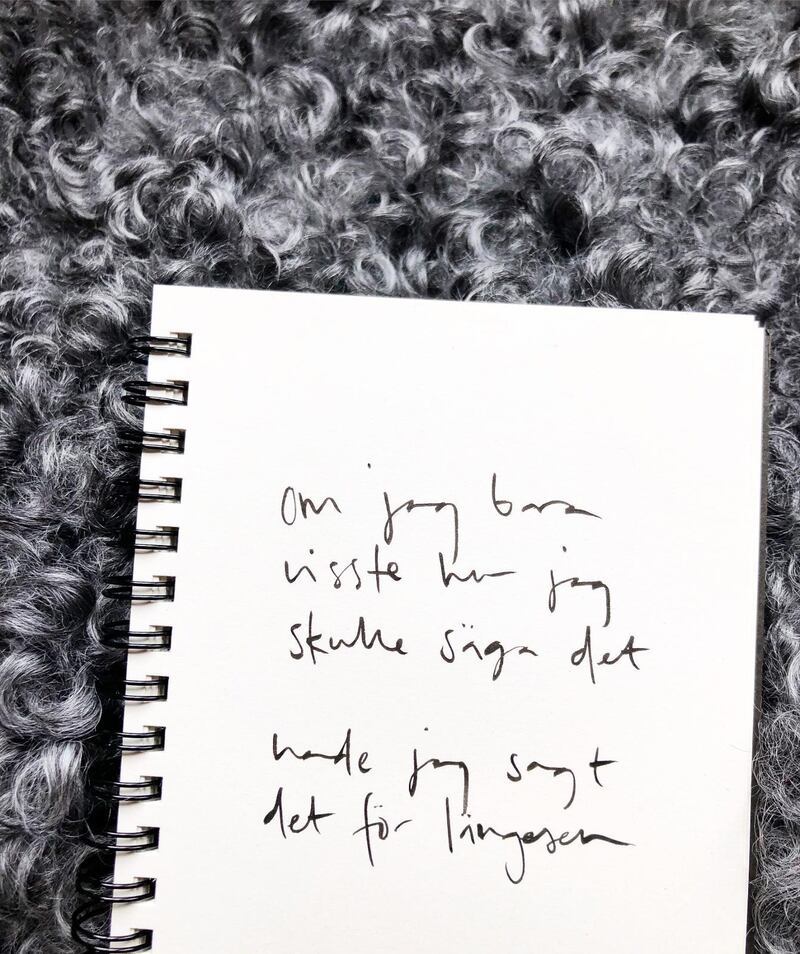 Om jag bara
visste hur jag
skulle säga det
hade jag sagt
det för längesen